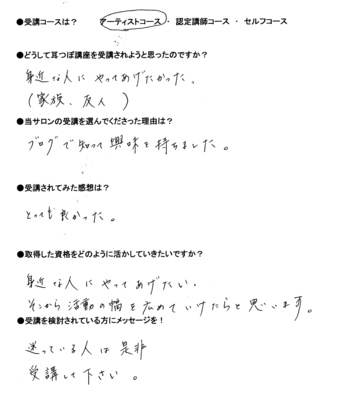 ●受講コースは？　アーティストコース ・ 認定講師コース ・ セルフコース
●どうして耳つぼ講座を受講されようと思ったのですか？
身近な人にやってあげたかった。
（家族、友人）
●当サロンの受講を選んでくださった理由は？
ブログで知って興味を持ちました。
●受講されてみた感想は？
とっても良かった。
●取得した資格をどのように活かしていきたいですか？
身近な人にやってあげたい。
そこから活動の幅を広めていけたらと思います。
●受講を検討されている方にメッセージを！
迷っている人は是非
受講して下さい。